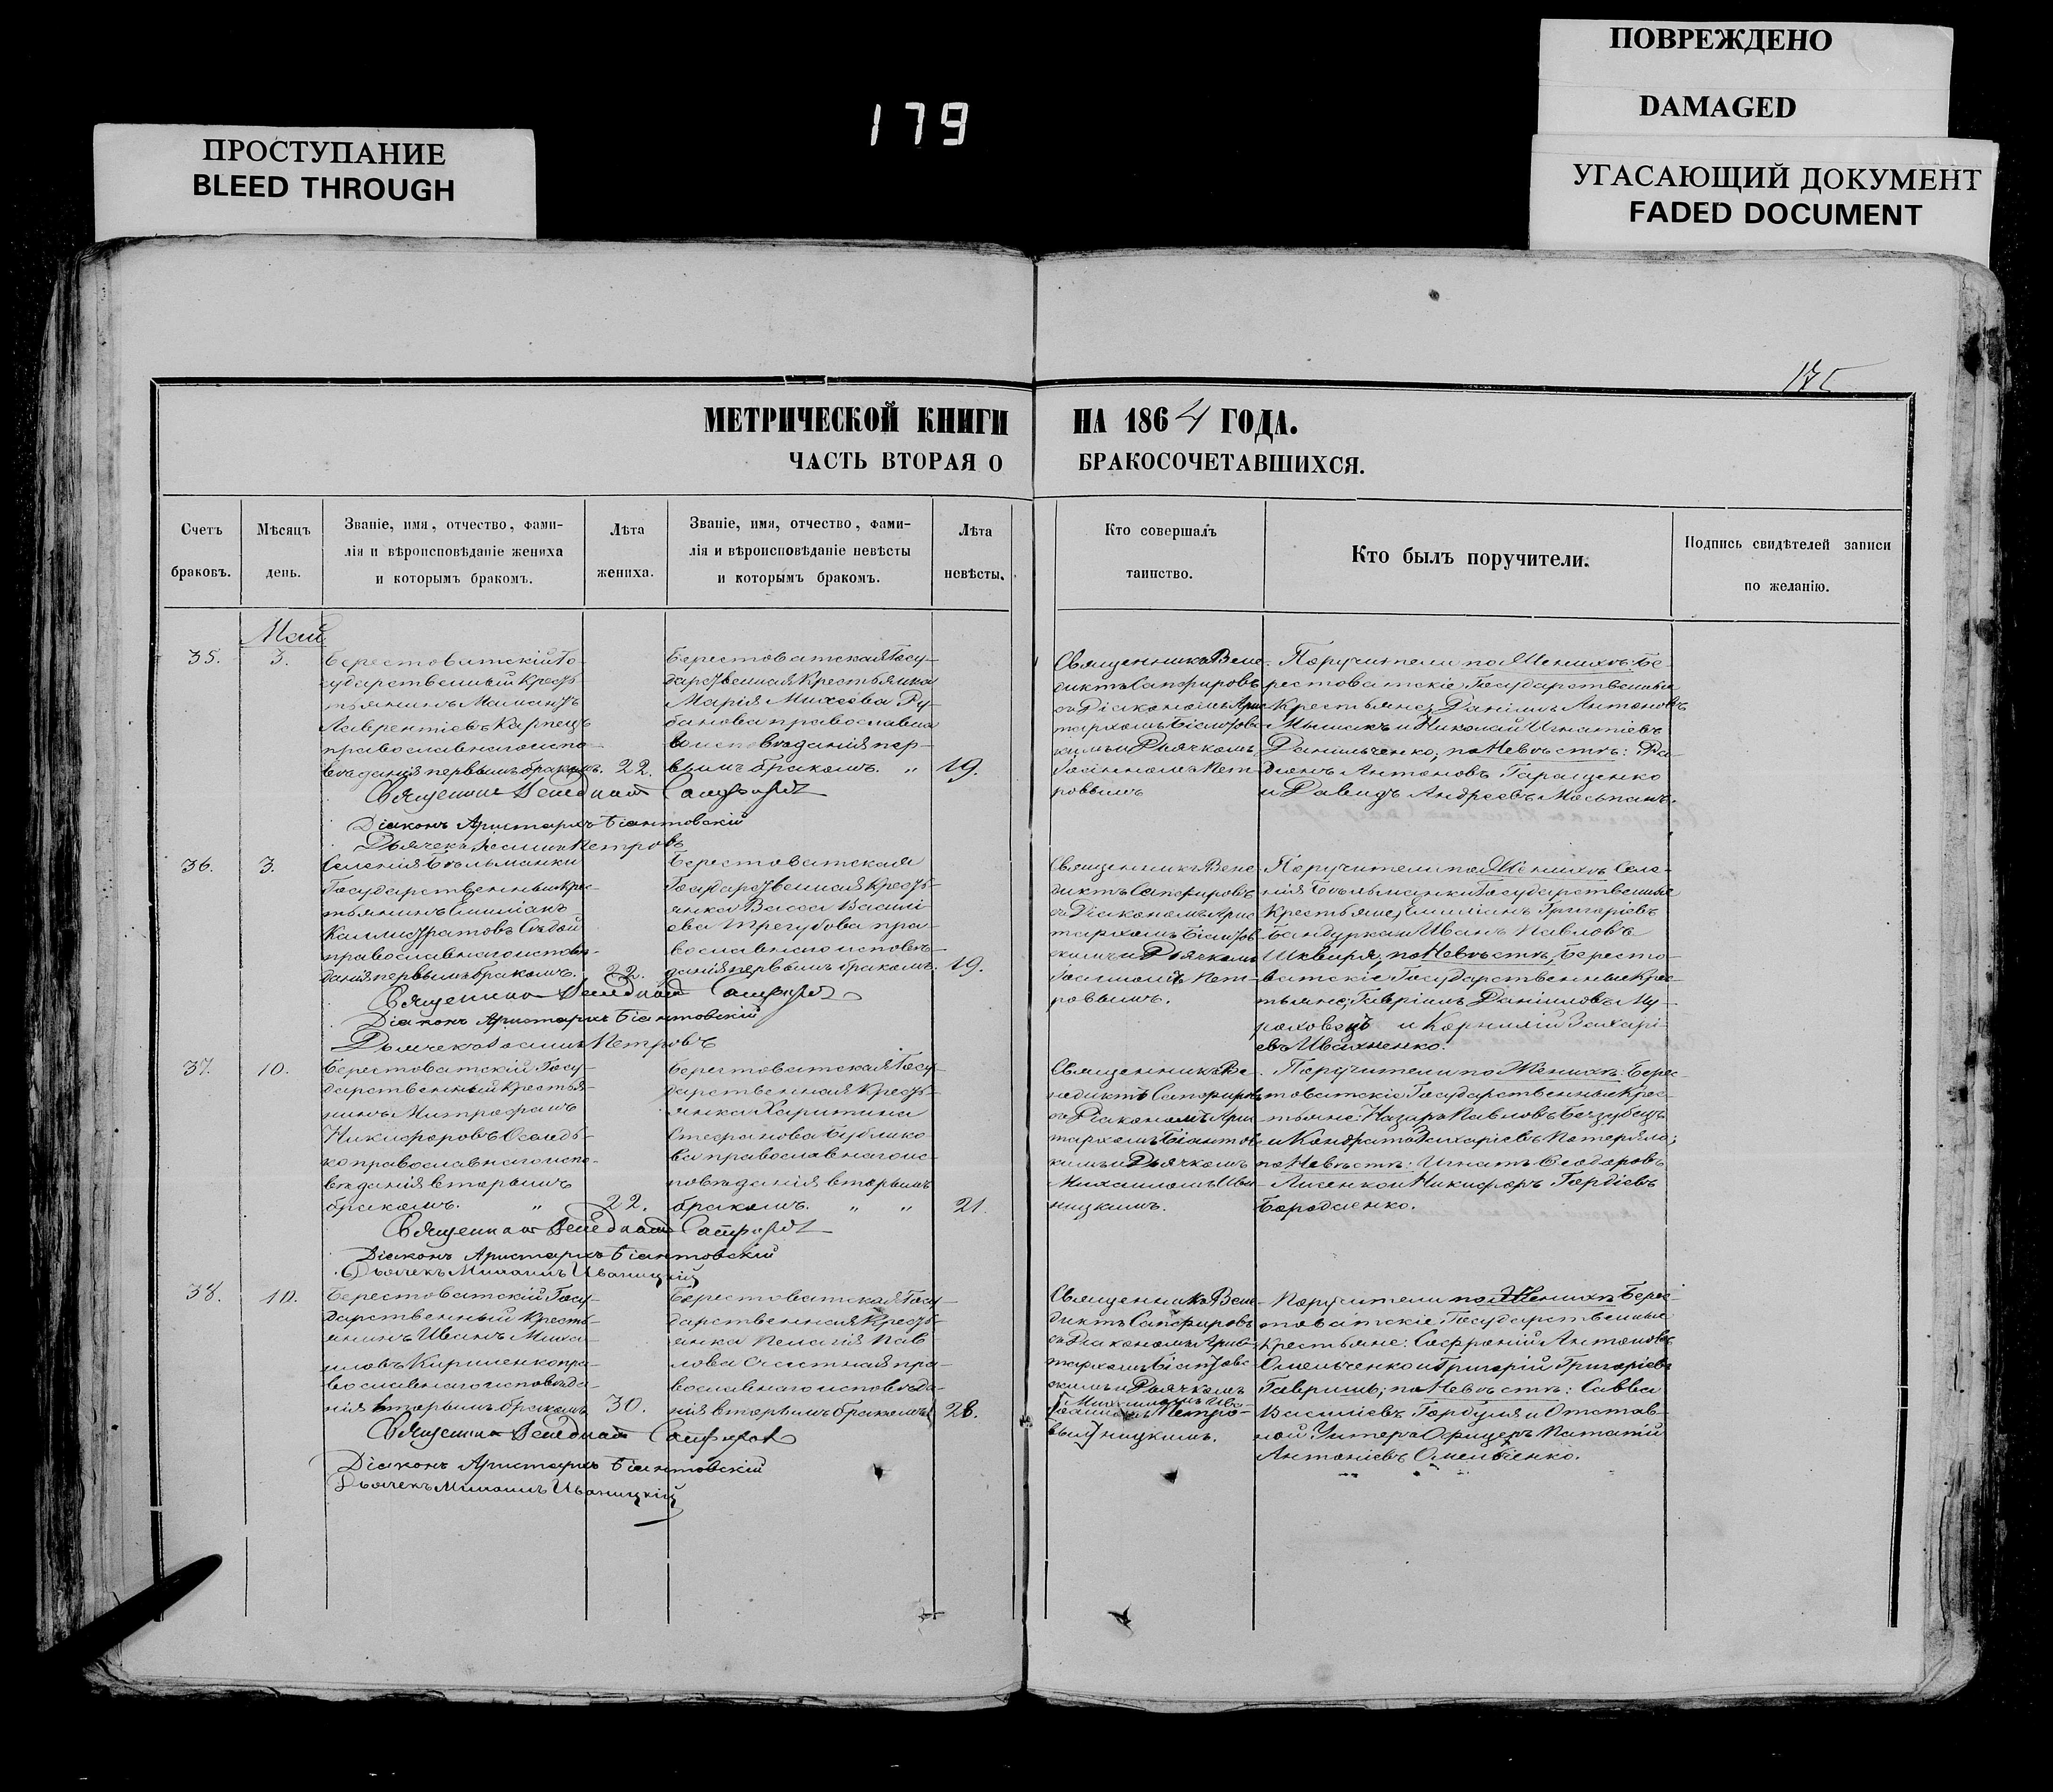 ПОВРЕЖДЕНО
DAMAGED
179
ПРОСТУПАНИЕ
BLEED THROUGH
УГАСАЮЩИЙ ДОКУМЕНТ
FADED DOCUMENT
МЕТРИЧЕСКОЙ КНИГИ НА 1864 ГОДА.
ЧАСТЬ ВТОРАЯ О БРАКОСОЧЕТАВШИХСЯ.
Счетъ браковъ.
Мѣсяцъ день.
Званіе, имя, отчество, фами-
лія и вѣроисповѣданіе жениха
и которымъ бракомъ.
Лѣта жениха.
Званіе, имя, отчество, фами-
лія и вѣроисповѣданіе невѣсты
и которымъ бракомъ.
Лѣта невѣсты.
Кто совершалъ
таинство.
Кто былъ поручители.
Подпись свидѣтелей записи
по желанію.
Май
35.
3.
Берестоватскій Го-
сударственный кресть-
янинъ
Лаврентіевъ Карпецъ
православнаго испо-
вѣданія первымъ бракомъ.
22.
Берестоватская Госу-
дарственная Крестьянка
Марія Михеева Ру-
банова православна
го исповѣданія пер-
вымъ бракомъ. "
19.
Священникъ Вене-
диктъ Сапфировъ
съ Діакономъ Арис
тархомъ Біантовс
кимъ и Дьячкомъ
Іоанномъ Пет-
ровымъ
Поручители по Женихѣ: Бе-
рестоватскіе Государственные
Крестьяне; Даніилъ Антоновъ
и Николай Игнатіевъ
Данильченко; по Невѣстѣ: Ро-
діонъ Антоновъ Таращенко
и Давидъ Андреевъ Моспанъ.
Священникъ Венедиктъ Сапфировъ
Діаконъ Аристархъ Біантовскій
Дьячекъ Іоаннъ Петровъ
36.
3.
Селенія Бѣльманки
Государственный Крес-
тьянинъ Емиліанъ
Каллистратовъ Сѣдой
православнаго исповѣ-
данія первымъ бракомъ.
22.
Берестоватская
Государственная Кресть-
янка Васса Васильі
ева Трегубова пра-
вославнаго исповѣ-
данія первымъ бракомъ.
19.
Священникъ Вене
диктъ Сапфировъ
съ Діакономъ Арис
тархомъ Біантов
скимъ и Дьячкомъ
Іоанномъ Пет-
ровымъ.
Поручители по Женихѣ Селе-
нія Бѣльманки Государственные
Крестьяне; Емиліанъ Григоріевъ
Бандурка и Иванъ Павловъ
Шкваря; по Невѣстѣ, Бересто-
ватскіе Государственные Крес-
тьяне; Гавріилъ Даніиловъ Му-
роховецъ и Корнилій Захарі-
евъ Ивахненко.
Священникъ Венедиктъ Сапфировъ
Діаконъ Аристархъ Біантовскій
Дьячекъ Іоаннъ Петровъ
37.
10.
Берестоватскій Госу-
дарственный крестья-
нинъ Митрофанъ
Никифоровъ Оседь-
ко православнаго испо-
вѣданія вторымъ
бракомъ. "
22.
Берестоватская Госу-
дарственная Кресть-
янка Харитина
Стефанова Бублико
ва православнаго ис-
повѣданія вторымъ
бракомъ. " "
21.
Священникъ Ве-
недиктъ Сапфировъ
съ Діакономъ Арис
тархомъ Біантовс
кимъ и Дьячкомъ
Михаиломъ Ива
ницкимъ.
Поручители по Женихѣ: Берес-
товатскіе Государственные Крес-
тьяне: Назаръ Павловъ Беззубецъ
и Кондратъ Захаріевъ Потеряло;
по Невѣстѣ: Игнатъ Ѳеодоровъ
Лисенко и Никифоръ Гордіевъ
Бородаенко.
Священникъ Венедиктъ Сапфировъ
Діаконъ Аристархъ Біантовскій
Дьячекъ Михаилъ Иваницкій
38.
10.
Берестоватскій Госу-
дарственный Кресть-
янинъ Иванъ Михаи
ловъ Кириленко пра-
вославнаго исповѣда-
нія вторымъ бракомъ
30.
Берестоватская Госу-
дарственная Кресть-
янка Пелагія Пав
лова пра-
вославнаго исповѣда-
нія вторымъ бракомъ
28.
Священникъ Вене-
диктъ Сапфировъ
съ Діакономъ Арис-
тархомъ Біантовс
кимъ и Дьячкомъ
Михаиломъ Ива-
[Іоанномъ Петро-
вым] ницкимъ.
Поручители по Женихѣ Берес-
товатскіе Государственные
Крестьяне: Софроній Антоновъ
Омельченко и Григорій Григоріевъ
Гавришъ; по Невѣстѣ: Савва
Василіевъ Горбуля и Отстав-
ной Унтеръ Офицеръ Ипатій
Антоніевъ
Священникъ Венедиктъ Сапфировъ
Діаконъ Аристархъ Біантовскій
Дьячекъ Михаилъ Иваницкій